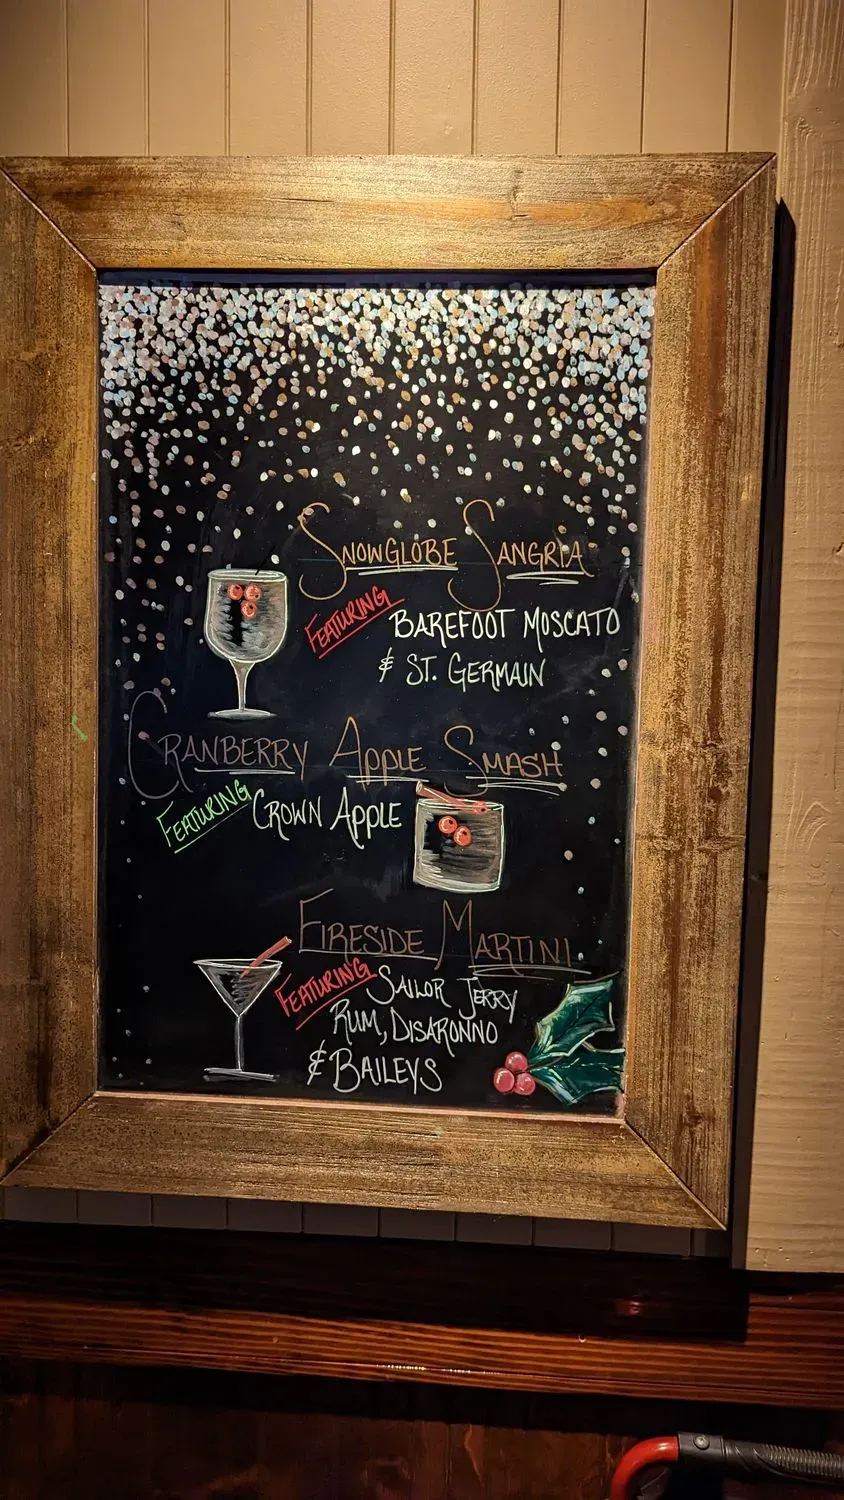 SNOWGLOBE SANGRIA
FEATURING BAREFOOT MOSCATO
& ST. GERMAIN
CRANBERRY APPLE SMASH
FEATURING CROWN APPLE
FIRESIDE MARTINI
FEATURING SAILOR JERRY
RUM, DISARONNO
& BAILEYS